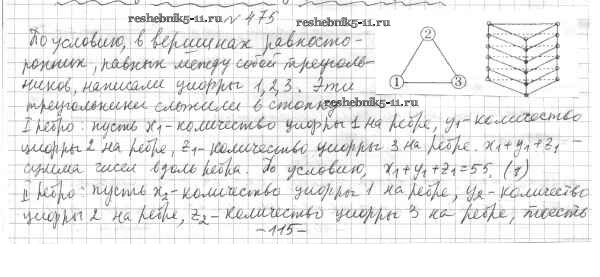 № 475
reshebnik5-11.ru
reshebnik5-11.ru
По условию, в вершинах равносто-
ронних, равных между собой треуголь-
ников, написали цифры 1, 2, 3. Эти
треугольники сложили в стопку.
2
1
3
reshebnik5-11.ru
I ребро: пусть x₁ - количество цифры 1 на ребре, y₁ - количество
цифры 2 на ребре, z₁ - количество цифры 3 на ребре. x₁+y₁+z₁ -
сумма чисел вдоль ребра. По условию, x₁+y₁+z₁=55. (1)
II ребро: пусть x₂ - количество цифры 1 на ребре, y₂ - количество
цифры 2 на ребре, z₂ - количество цифры 3 на ребре, то есть
-115-